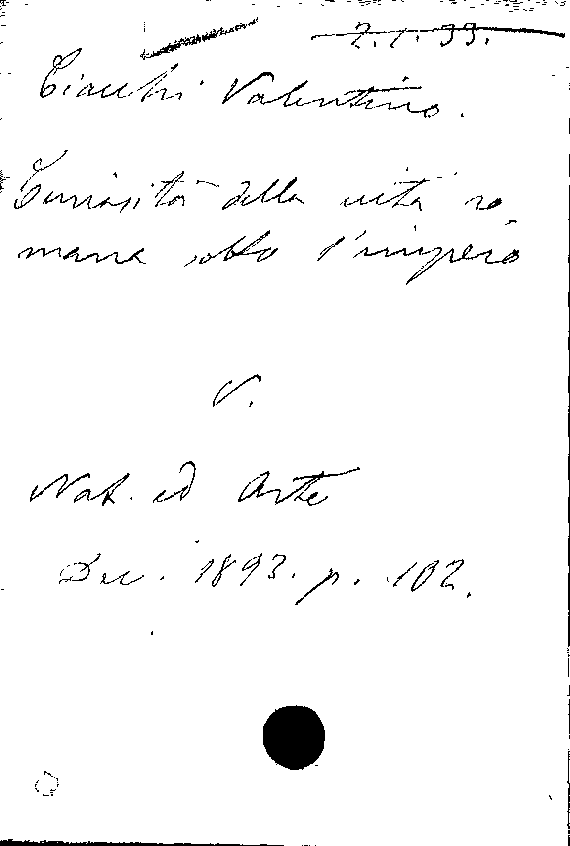 2.1.33.
Ciacchi Valentino.
Curiosità della vita ro-
mana sotto l'impero
V.
Nat. ed Arte
Dec. 1893. p. 102.